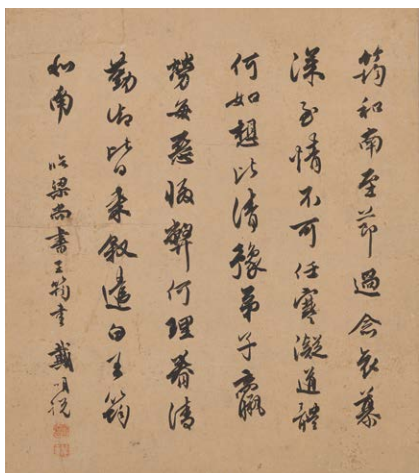 筠和南至節過念哀慕
深至情不可任寒凝道體
何如想比清豫弟子羸
勞每惡弊何理清
勤叙遣白王筠
和南
臨梁尚書王筠書 戴明説